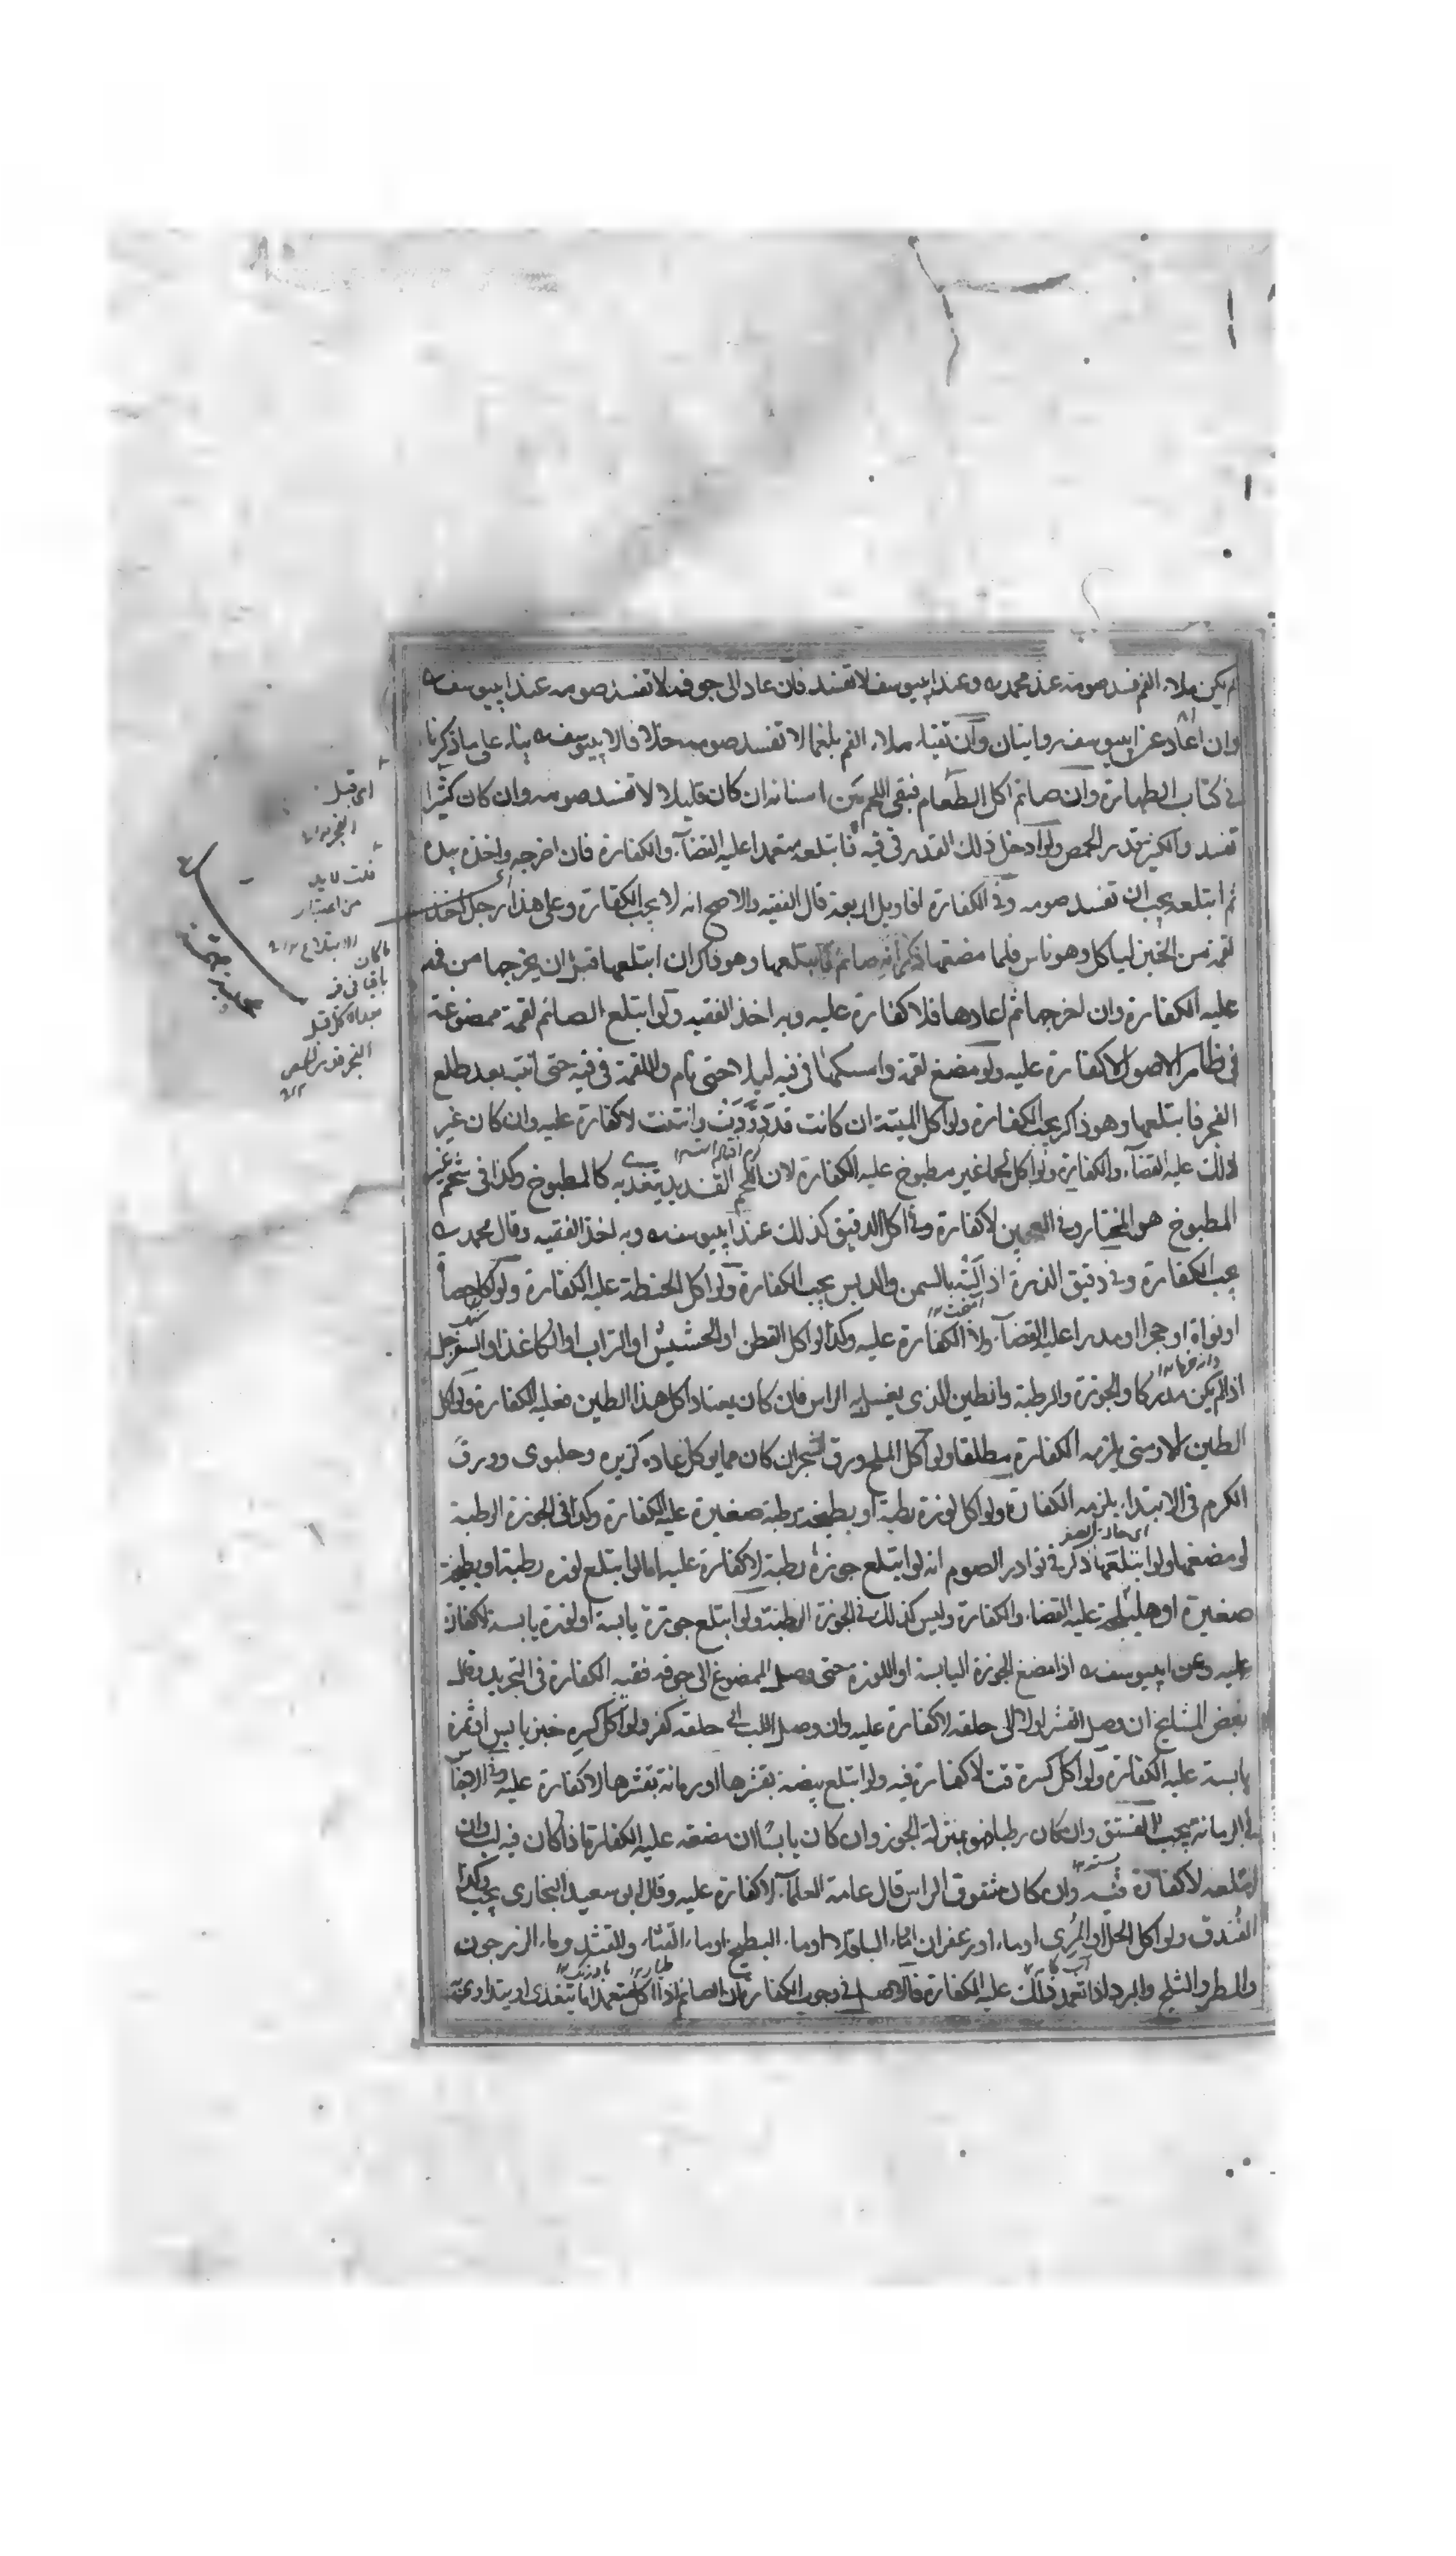 لم يكن ملاء الفم فسد صومه عند محمد ره وعند ابيوسف لا تفسد فان عاد الى جوفه لا تفسد صومه عند ابيوسف ره
وان اعاد عن ابيوسف روايتان وان تقيا ملاء الفم بلغما لا تفسد صومه خلافا لابيوسف ره بناء على ما ذكرنا
في كتاب الطهارة وان صائم اكل الطعام فبقى اللحم بين اسنانه ان كان قليلا لا تفسد صومه وان كان كثيرا
تفسد والكثير قدر الحمص ولو ادخل ذلك القدر في فيه فابتلعه متعمدا عليه القضاء والكفارة فان اخرجه واخذه بيده
ثم ابتلعه يجب ان تفسد صومه وفي الكفارة اقاويل اربعة قال الفقيه والاصح انه لا يجب الكفارة وعلى هذا رجل اخذ
لقمة من الخبز لياكل وهو ناس فلما مضغها ذكر انه صائم فابتلعها وهو ذاكر ان ابتلعها قبل ان يخرجها من فمه
عليه الكفارة وان اخرجها ثم اعادها فلا كفارة عليه وبه اخذ الفقيه ولو ابتلع الصائم لقمة ممضوغة
في ظاهر الاصول لا كفارة عليه ولو مضغ لقمة وامسكها في فيه ليلا حتى نام واللقمة في فيه حتى انتبه بعد طلع
الفجر فابتلعها وهو ذاكر يجب الكفارة ولو اكل الميتة ان كانت قد دودت وانتنت لا كفارة عليه وان كان غير
ذلك عليه القضاء والكفارة ولو اكل لحما غير مطبوخ عليه الكفارة لان اللحم القديد يتغدى به كالمطبوخ وكذا في شحم غير
المطبوخ هو المختار وفي العجين لا كفارة وفي اكل الدقيق كذلك عند ابيوسف ره وبه اخذ الفقيه وقال محمد ره
يجب الكفارة وفي دقيق الذرة اذا لته بالسمن والدبس يجب الكفارة ولو اكل الحنطة عليه الكفارة ولو اكل حصا
او نواة او حجرا او مدرا عليه القضاء ولا الكفارة عليه وكذا لو اكل القطن او الحشيش او التراب او الكاغذ او السفرجل
اذا لم يكن مدركا والجوزة والرطبة والطين الذي يغسل به الراس فان كان يعتاد اكل هذا الطين فعليه الكفارة ولو اكل
الطين الارمني يلزمه الكفارة مطلقا ولو اكل الملح ورق الشجر ان كان مما يوكل عادة كزبره وحلبوى وورق
الكرم في الابتداء يلزمه الكفارة ولو اكل لوزة رطبة او بطيخة رطبة صغيرة عليه الكفارة وكذا في الجوزة الرطبة
لو مضغها ولو ابتلعها ذكر في نوادر الصوم انه لو ابتلع جوزة رطبة لا كفارة عليه اما لو ابتلع لوزه رطبة او بطيخة
صغيرة او هليلجة عليه القضاء والكفارة وليس كذلك في الجوزة الرطبة ولو ابتلع جوزة يابسة او لوزة يابسة لا كفارة
عليه وعن ابيوسف ره اذا مضغ الجوزة اليابسة او اللوزة حتى وصل الممضوغ الى جوفه ففيه الكفارة في التجريد وقال
بعض المشايخ ان وصل القشر اولا الى حلقه لا كفارة عليه وان وصل اللب الى حلقه كفر ولو اكل كسره خبز يابس او ثمرة
يابسة عليه الكفارة ولو اكل كسرة قت لا كفارة فيه ولو ابتلع بيضة بقشرها او رمانة بقشرها لا كفارة عليه وفي
في الرمانة يجب الفستق وان كان رطبا فهو بمنزلة الجوز وان كان يابسا ان مضغه عليه الكفارة اذا كان فيه لب وان
ابتلعه لا كفارة فيه وان كان مشقوق الراس قال عامة العلماء لا كفارة عليه وقال ابو سعيد البخارى يجب وكذا
الفندق ولو اكل الخل او المرى او ماء او زعفران او ماء الباقلا او ماء البطيخ او ماء القثاء والقثد وماء الزرجون
والمطر والثلج والبرد اذا تعمد ذلك عليه الكفارة فالاصل في وجوب الكفارة ان الصائم اذا اكل متعمدا ما يتغذى او يتداوى به
اى قبل
الفجر
قلت لا بد
من اعتبار
الابتلاع
ما كان
باقيا فى فمه